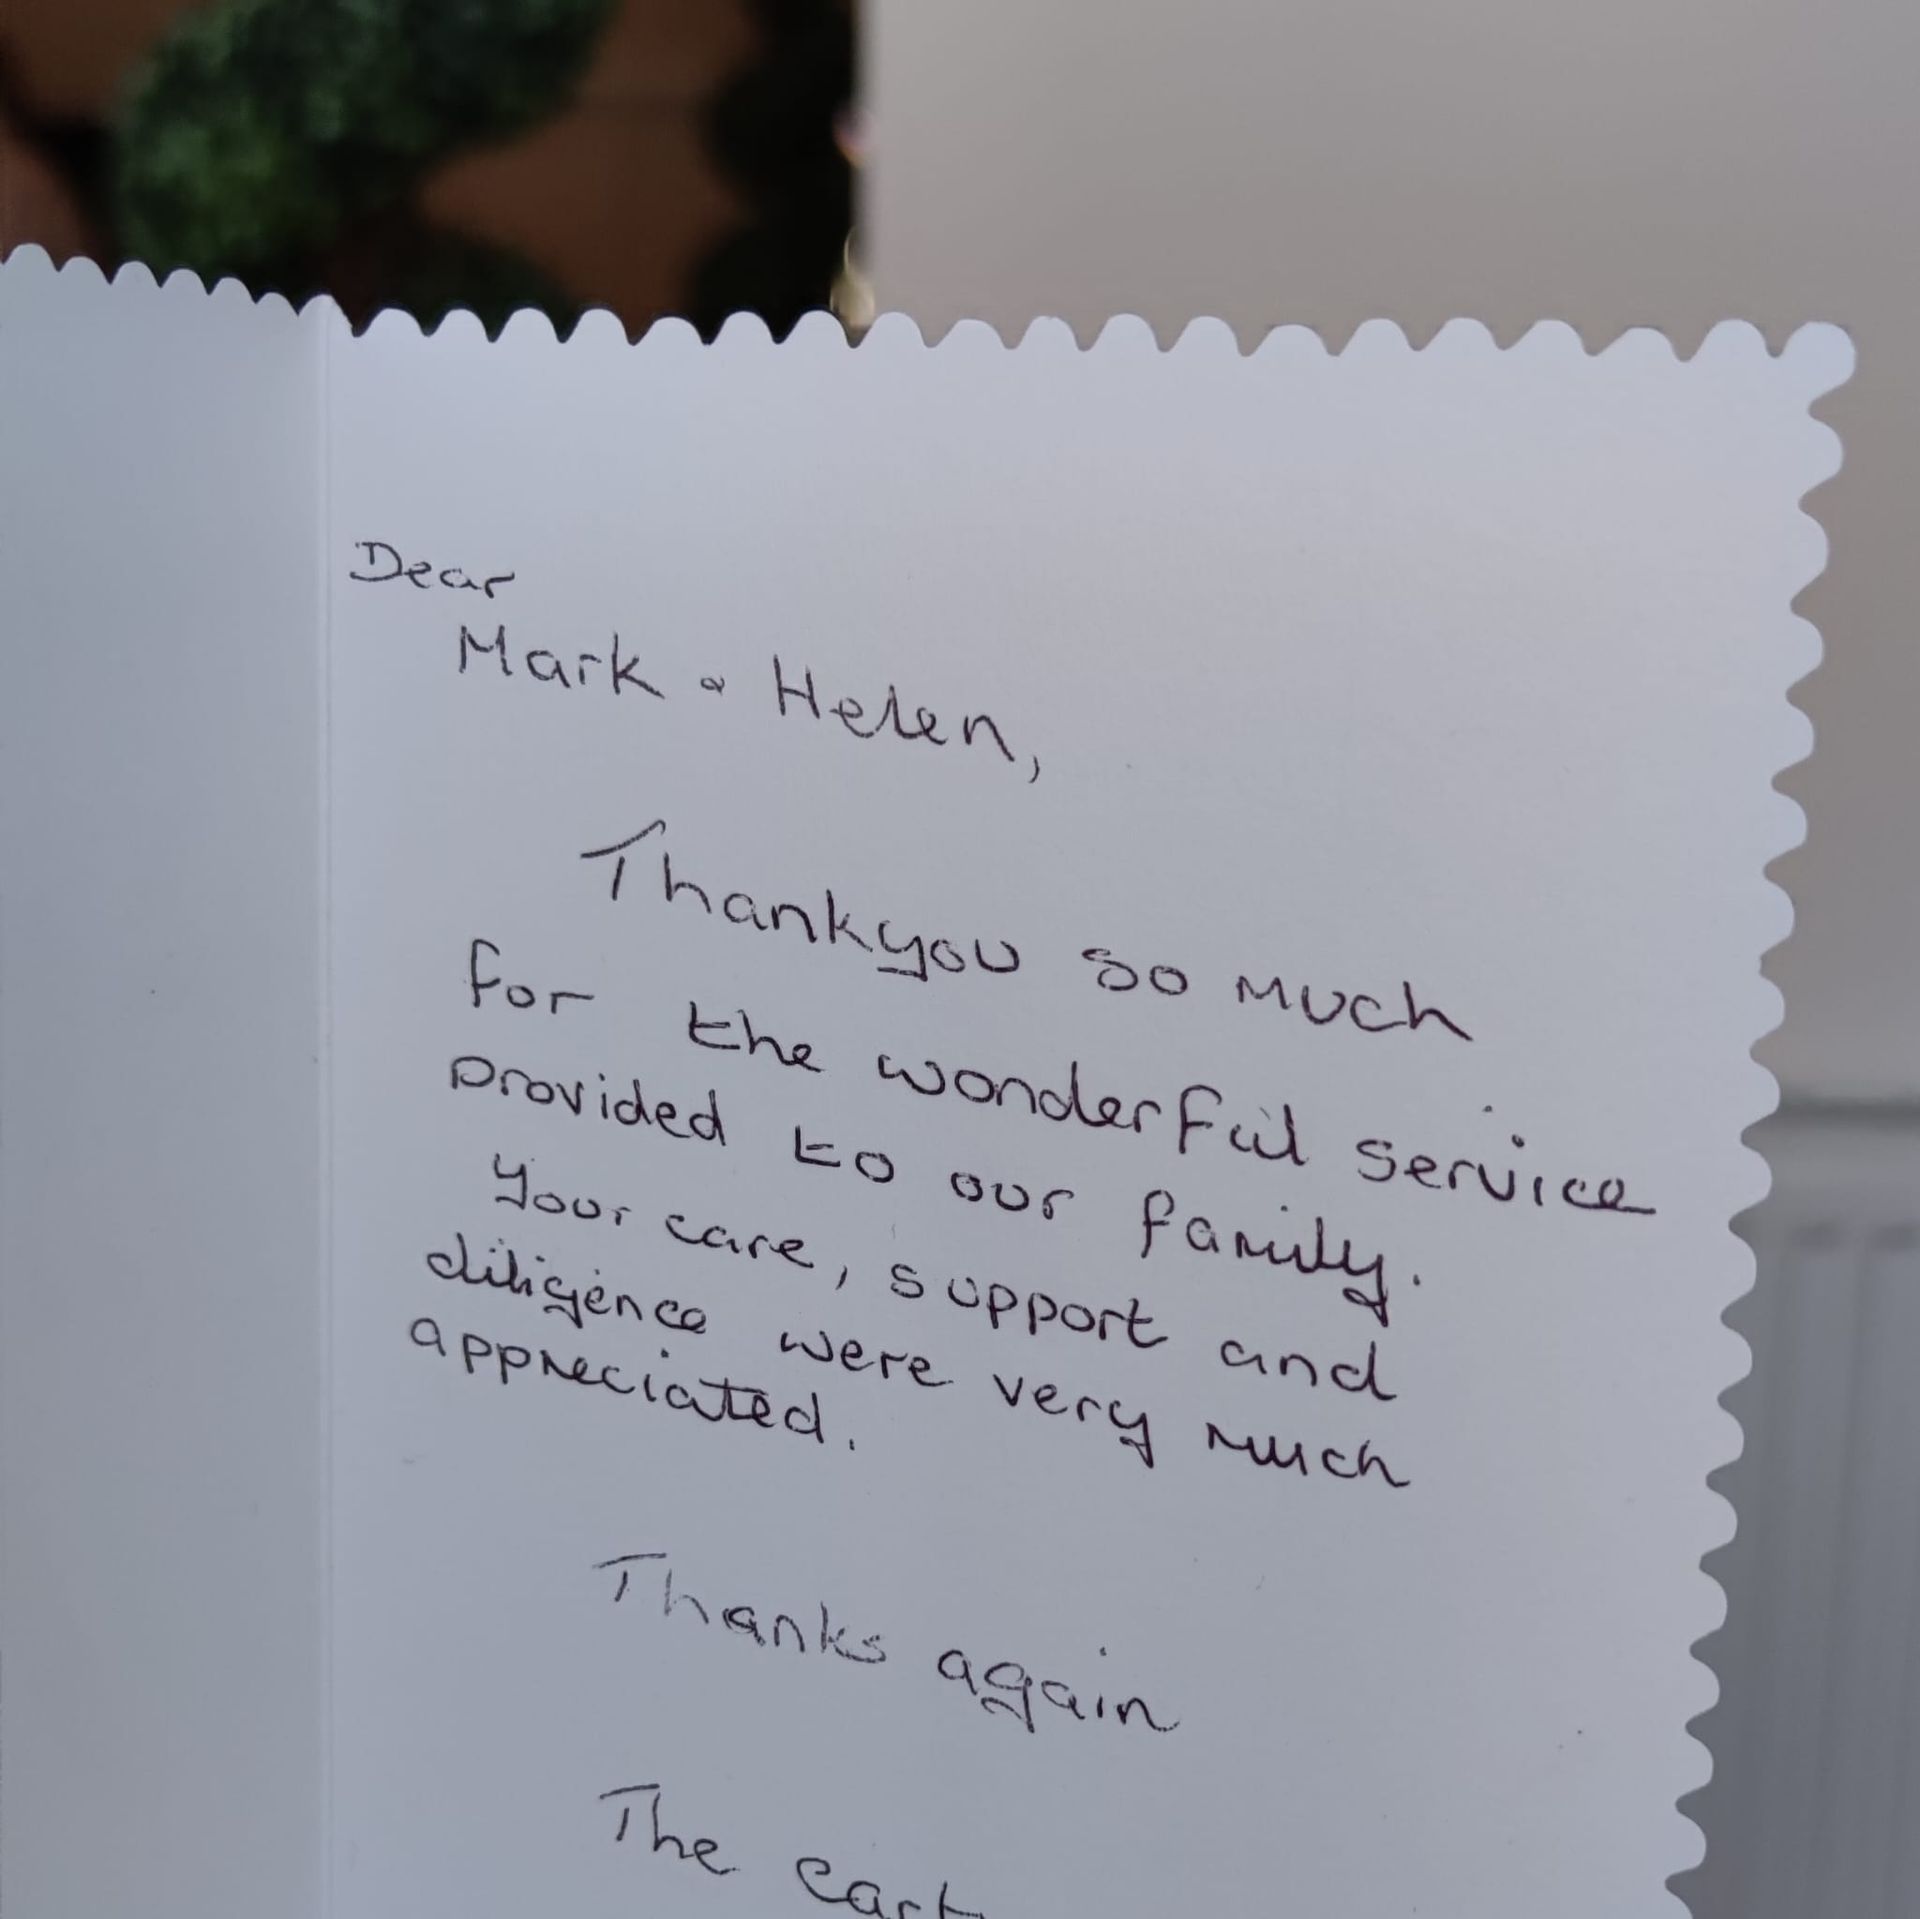 Dear
Mark & Helen,
Thankyou so much
for the wonderful service
provided to our family.
Your care, support and
diligence were very much
appreciated.
Thanks again
The